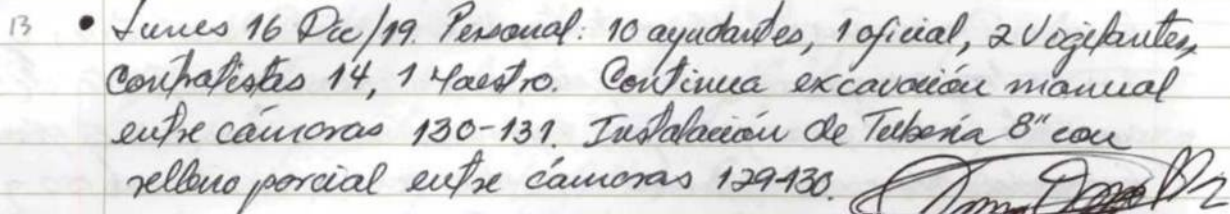 13 • Lunes 16 Dic/19. Personal: 10 ayudantes, 1 oficial, 2 Vigilantes,
Contratistas 14, 1 Maestro. Continua excavación manual
entre cámaras 130-131. Instalación de Tubería 8" con
relleno parcial entre cámaras 129-130.